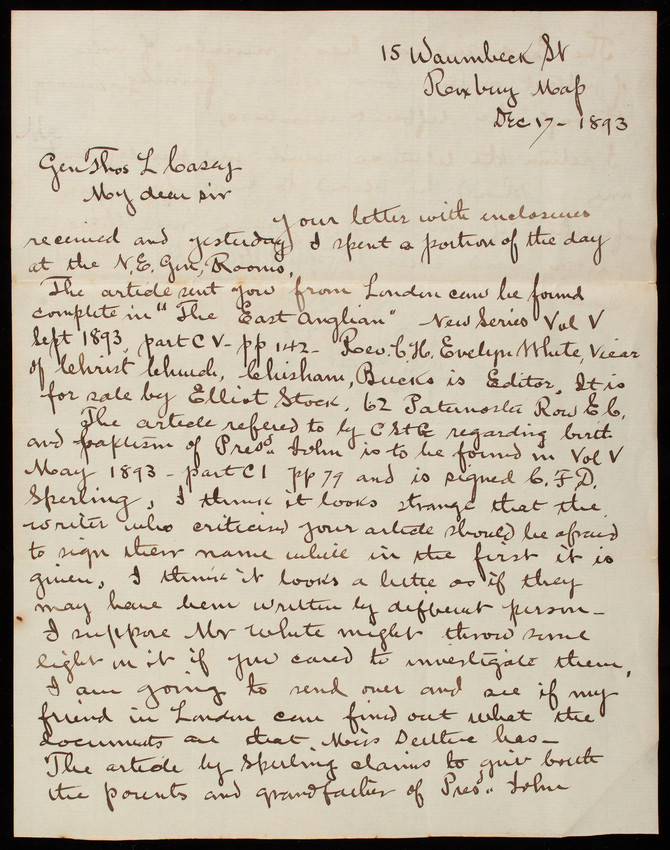 15 Waumbeck St
Roxbury Mass
Dec 17 - 1893
Gen Thos L Casey
My dear sir
your letter with enclosures
received and yesterday I spent a portion of the day
at the N.E. Gen, Rooms.
The article sent you from London can be found
complete in "The East Anglian" New Series Vol V
Sept 1893, part CV - pp 142 - Rev. C. H. Evelyn White, Vicar
of Christ Church, Chisham, Bucks is Editor. It is
for sale by Elliot Stock, 62 Paternoster Row E.C.
The article refered to by regarding birth
and baptism of Presd. John is to be found in Vol V
May 1893 - part CI pp 79 and is signed C. F. D.
Sperling, I think it looks strange that the
writer who criticised your article should be afraid
to sign their name while in the first it is
given, I think it looks a little as if they
may have been written by different person -
I suppose Mr White might throw some
light on it if you cared to investigate them,
I am going to send over and see if my
friend in London can find out what the
documents are that Miss has -
The article by Sperling claims to give both
the parents and grandfather of Presd. John